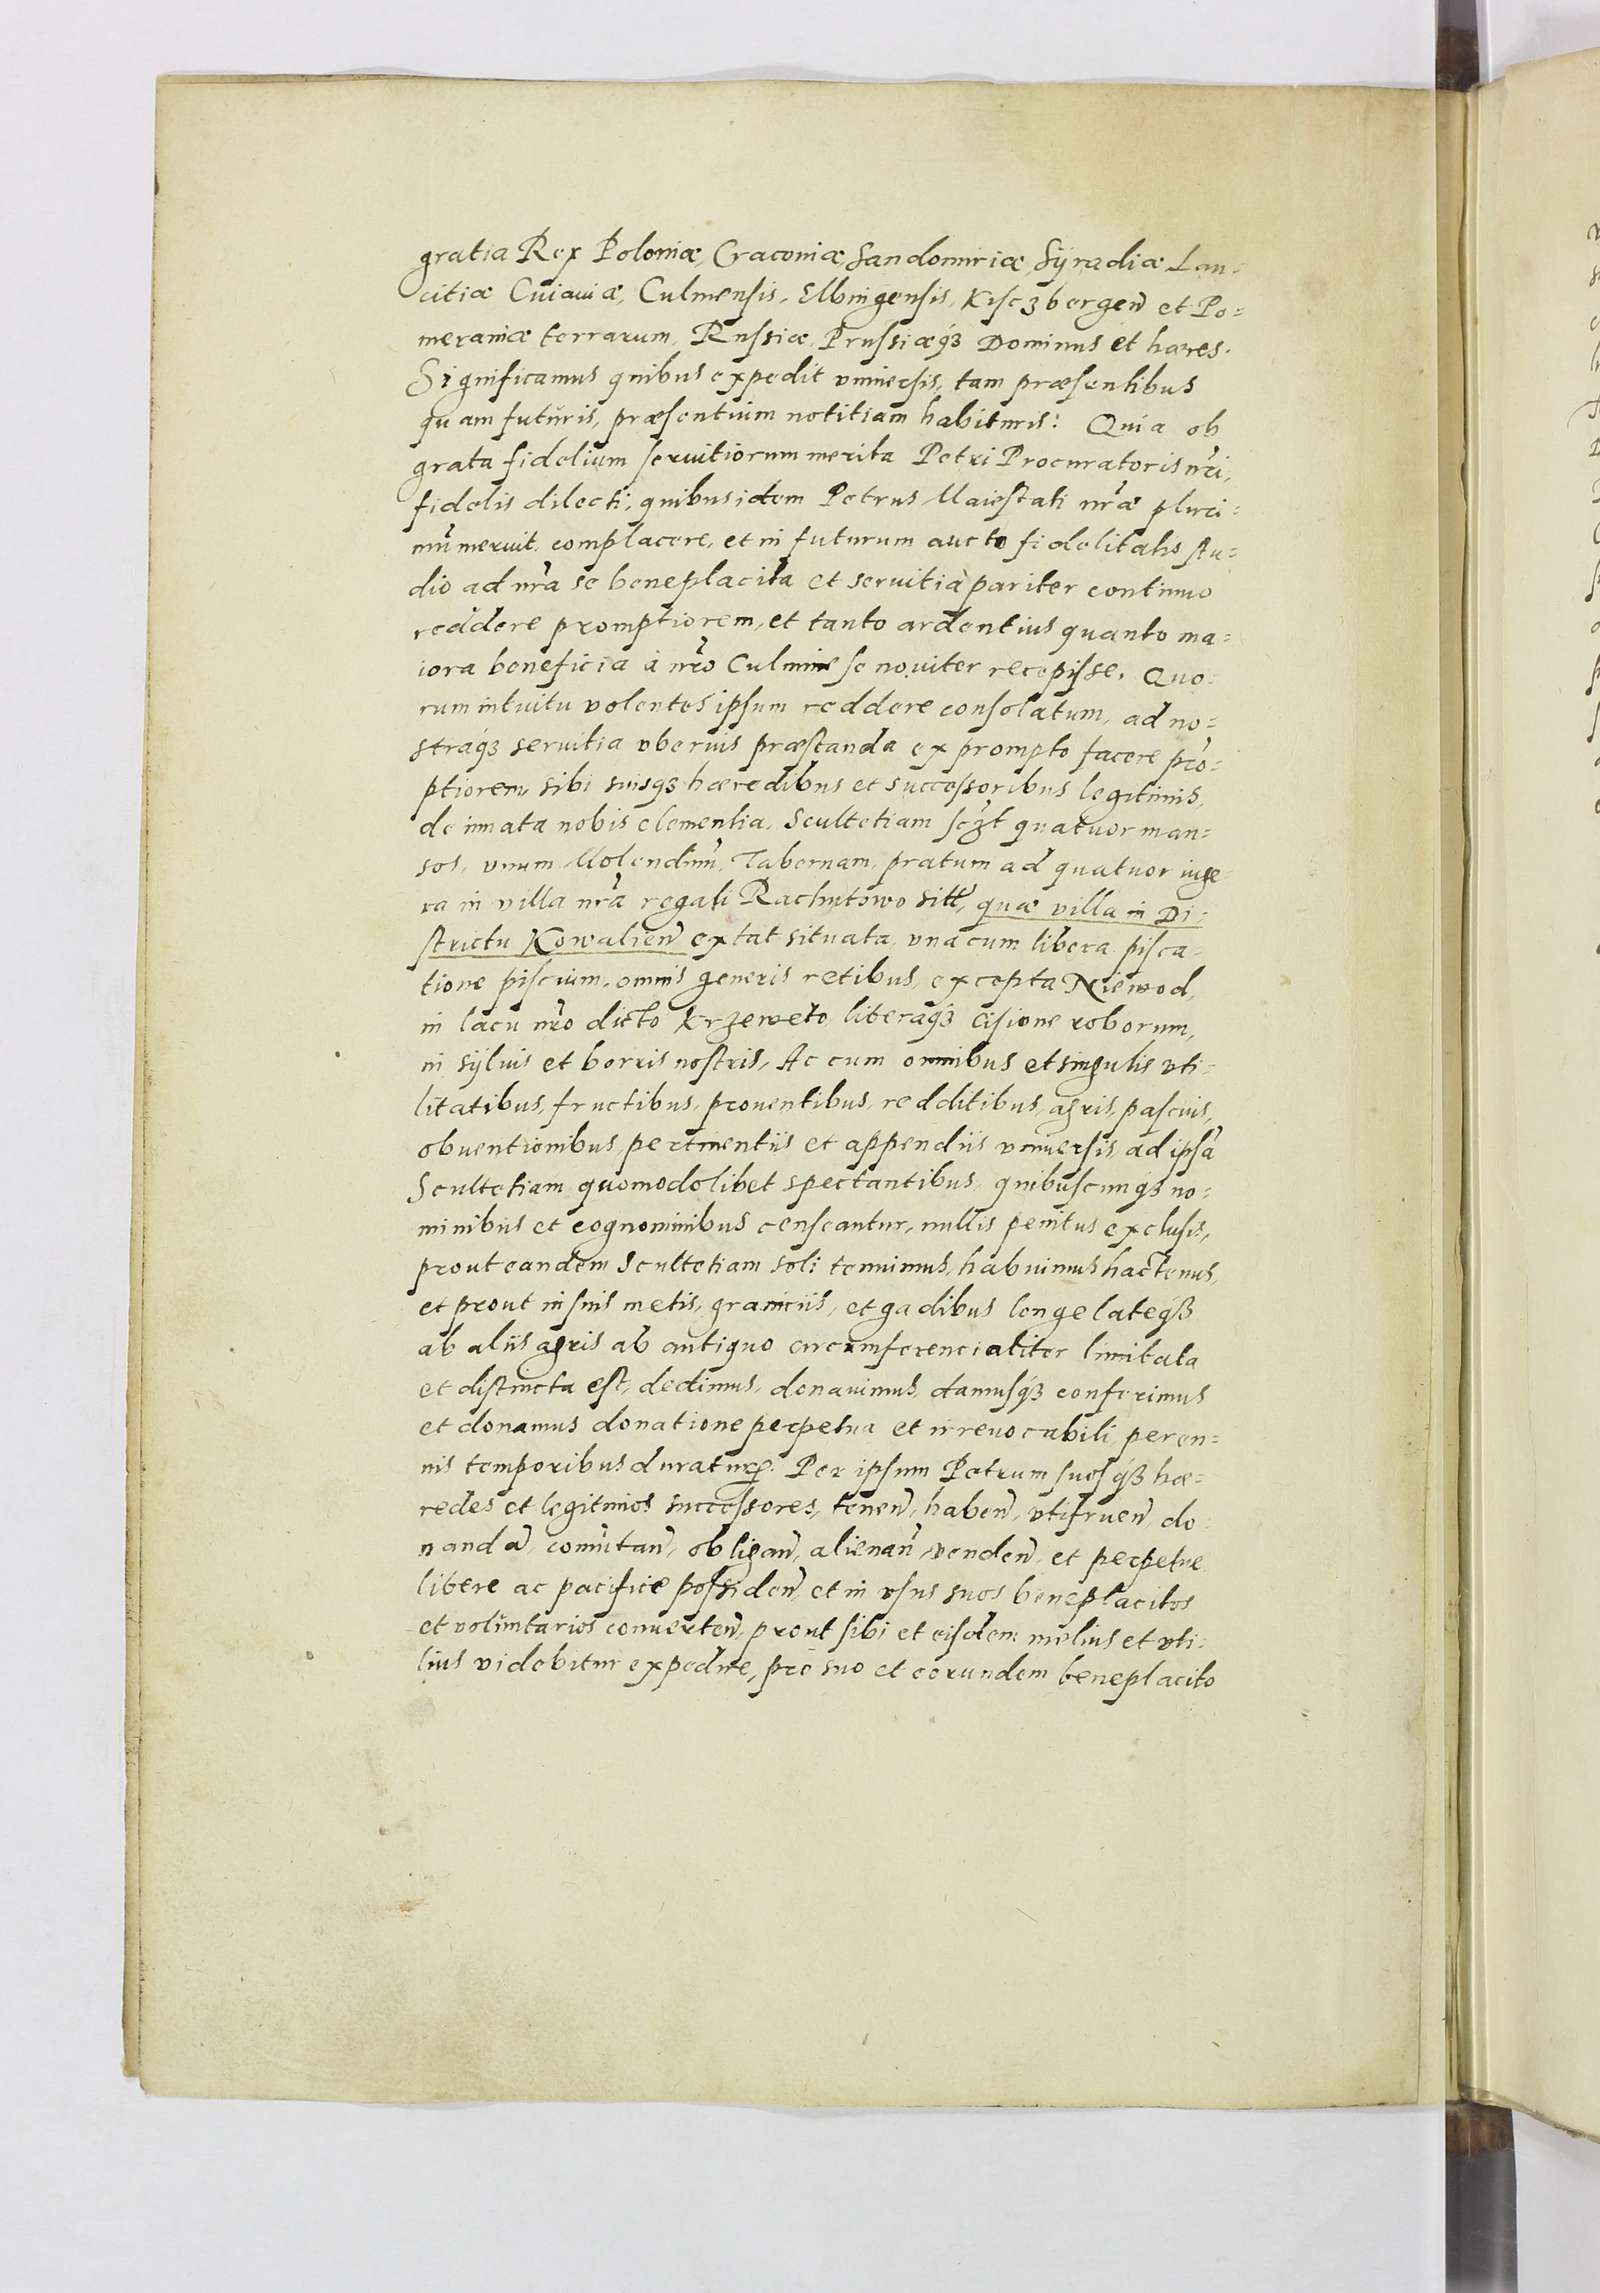 gratia Rex Poloniæ, Cracoviæ, Sandomiriæ, Syradiæ, Lan=
citiæ Cuiaviæ, Culmensis, Elbingensis, Kisczbergen̄ et Po=
meraniæ terrarum, Russiæ, Prussiæq₃ Dominus et hæres.
Significamus quibus expedit vniversis, tam præsentibus
quam futuris, præsentium notitiam habituris: Quia ob
grata fidelium servitiorum merita Petri Procuratoris nr̄i,
fidelis dilecti, quibus idem Petrus Maiestati nr̄æ pluri=
mū meruit complacere, et in futurum aucto fidelitatis stu=
dio ad nr̄a se beneplacita et servitia pariter continuo
reddere promptiorem, et tanto ardentius quanto ma=
iora beneficia à nr̄o Culmine se noviter recepisse. Quo=
rum intuitu volentes ipsum reddere consolatum, ad no=
straq₃ servitia vberius præstanda ex prompto facere prō=
ptiorem, sibi suisq₃ hæredibus et successoribus legitimis,
de innata nobis clementia, Scultetiam sczt quatuor man=
sos, vnum Molendinū, Tabernam, pratum ad quatuor iuge=
ra in villa nr̄a regali Rachutowo sitt, quæ villa in Di=
strictu Kowalien̄ extat situata, vna cum libera pisca=
tione piscium, omnis generis retibus, excepta Niewod,
in lacu nr̄o dicto Krzeweto, liberaq₃ cisione roborum,
in syluis et borris nostris, Ac cum omnibus et singulis vti=
litatibus, fructibus, prouentibus, redditibus, agris, pascuis,
obuentionibus, pertinentiis et appendiis vniuersis, ad ipsā
Scultetiam quomodolibet spectantibus, quibuscunq₃ no=
minibus et cognominibus censeantur, nullis penitus exclusis,
prout eandem Scultetiam soli tenuimus, habuimus hactenus,
et prout in suis metis, graniciis, et gadibus longe lateq₃
ab aliis agris ab antiquo circumferencialiter limitata
et distincta est, dedimus, donauimus, damusq₃ conferimus
et donamus donatione perpetua et irreuocabili, peren=
nis temporibus duratur. Per ipsum Petrum suosq₃ hæ=
redes et legitimos successores, tenen̄, haben̄, vtifruen̄, do=
nandā, comūtan̄, obligan̄, alienan̄, venden̄, et perpetue
libere ac pacifice possiden̄, et in vsus suos beneplacitos
et voluntarios conuerten̄, prout sibi et eisdem melius et vti=
lius videbitur expedire, pro suo et eorundem beneplacito